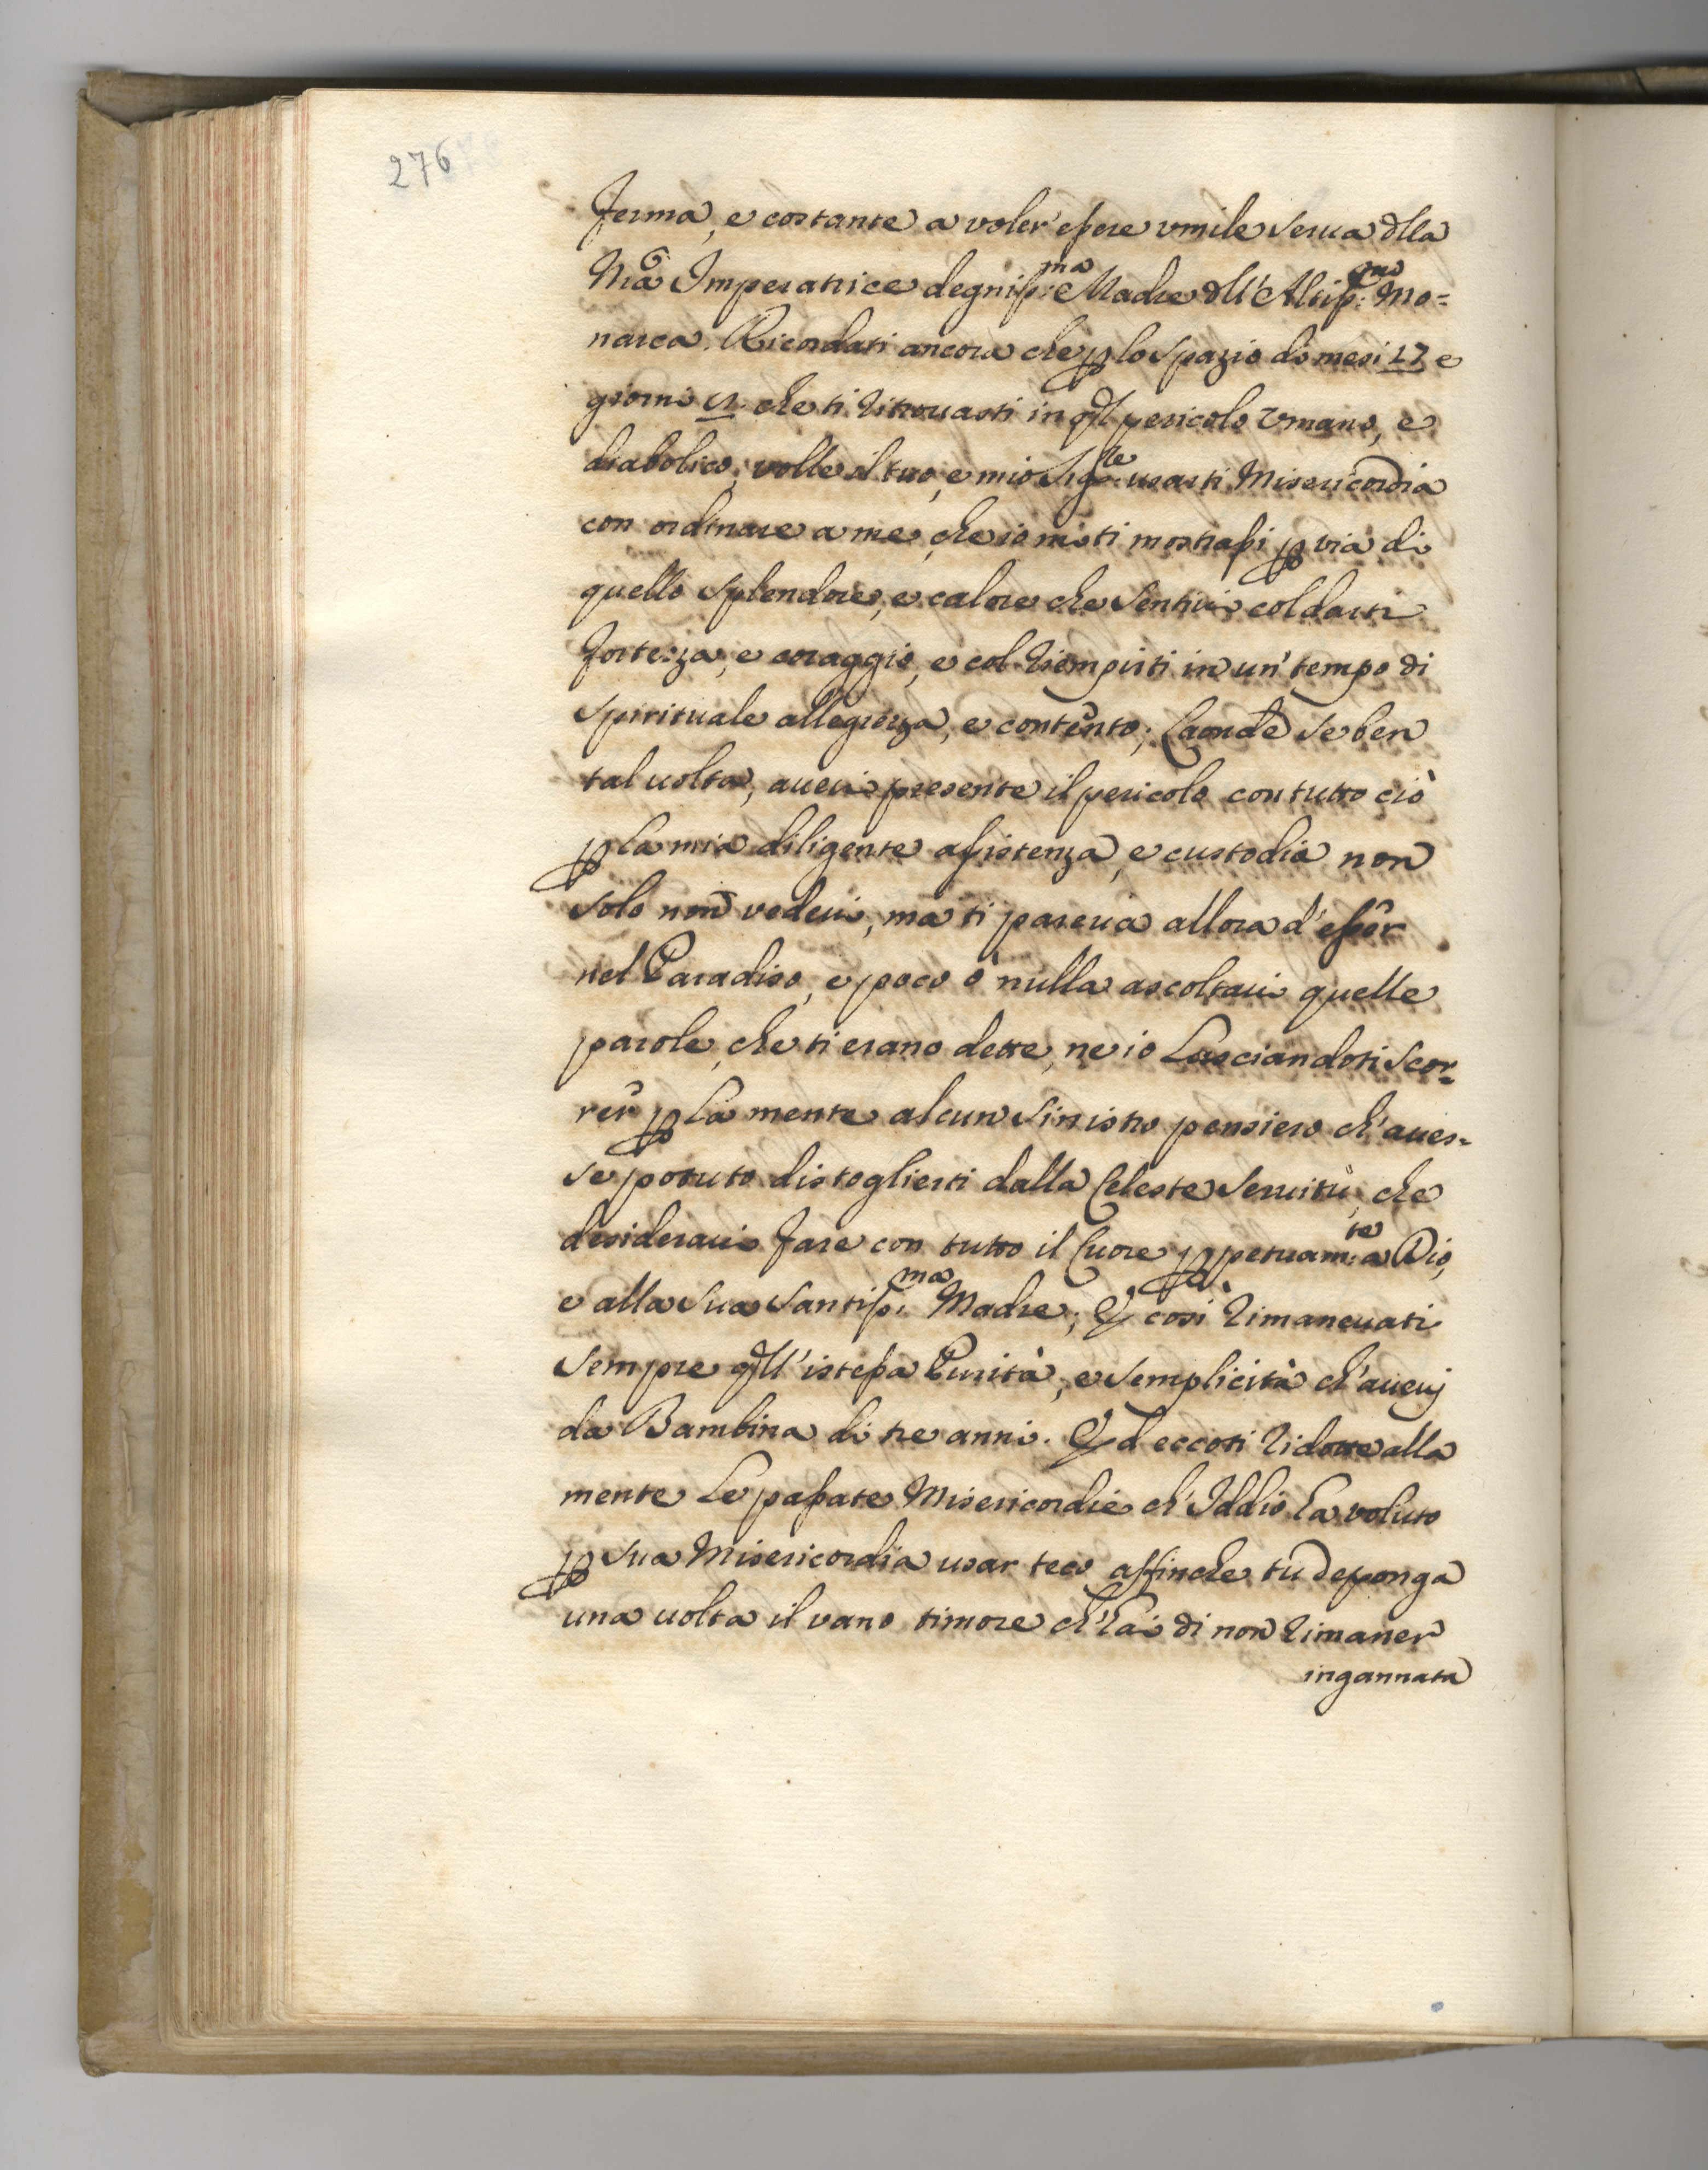 276
ferma, e costante a voler' essere vmile serua dlla
Nrã Imperatrice degniss:ma Madre dll' Altiss:mo Mo=
narca. Ricordati ancora che p lo spazio di mesi 17 e
giorni che ti ritrouasti in ql pericolo vmano, e
diabolico, volle il tuo, e mio Sig:re usarti Misericordia
con ordinare a me, che io mi ti mostrassi p via di
quello splendore, e calore che sentiui col darti
fortezza, e coraggio, e col riempirti in un' tempo di
spirituale allegrezza, e contento; Laonde se ben
tal uolta, aueui presente il pericolo con tutto ciò
p la mia diligente assistenza, e custodia non
solo non vedeui, ma ti pareua allora d' esser
nel Paradiso, e poco ò nulla ascoltaui quelle
parole, che ti erano dette, ne io lasciandoti scor=
rer p la mente alcun sinistro pensiero ch' aues=
se potuto distoglierti dalla Celeste seruitù, che
desideraui fare con tutto il Cuore ppetuam:te a Dio,
e alla sua santiss:ma Madre; E così rimaneuati
sempre qll' istessa Purità, e semplicità ch' aueuj
da Bambina di tre anni. Ed eccoti ridotte alla
mente le passate Misericordie ch' Iddio ha voluto
p sua Misericordia usar teco affinche tu deponga
una uolta il vano timore ch' hai di non rimaner
ingannata